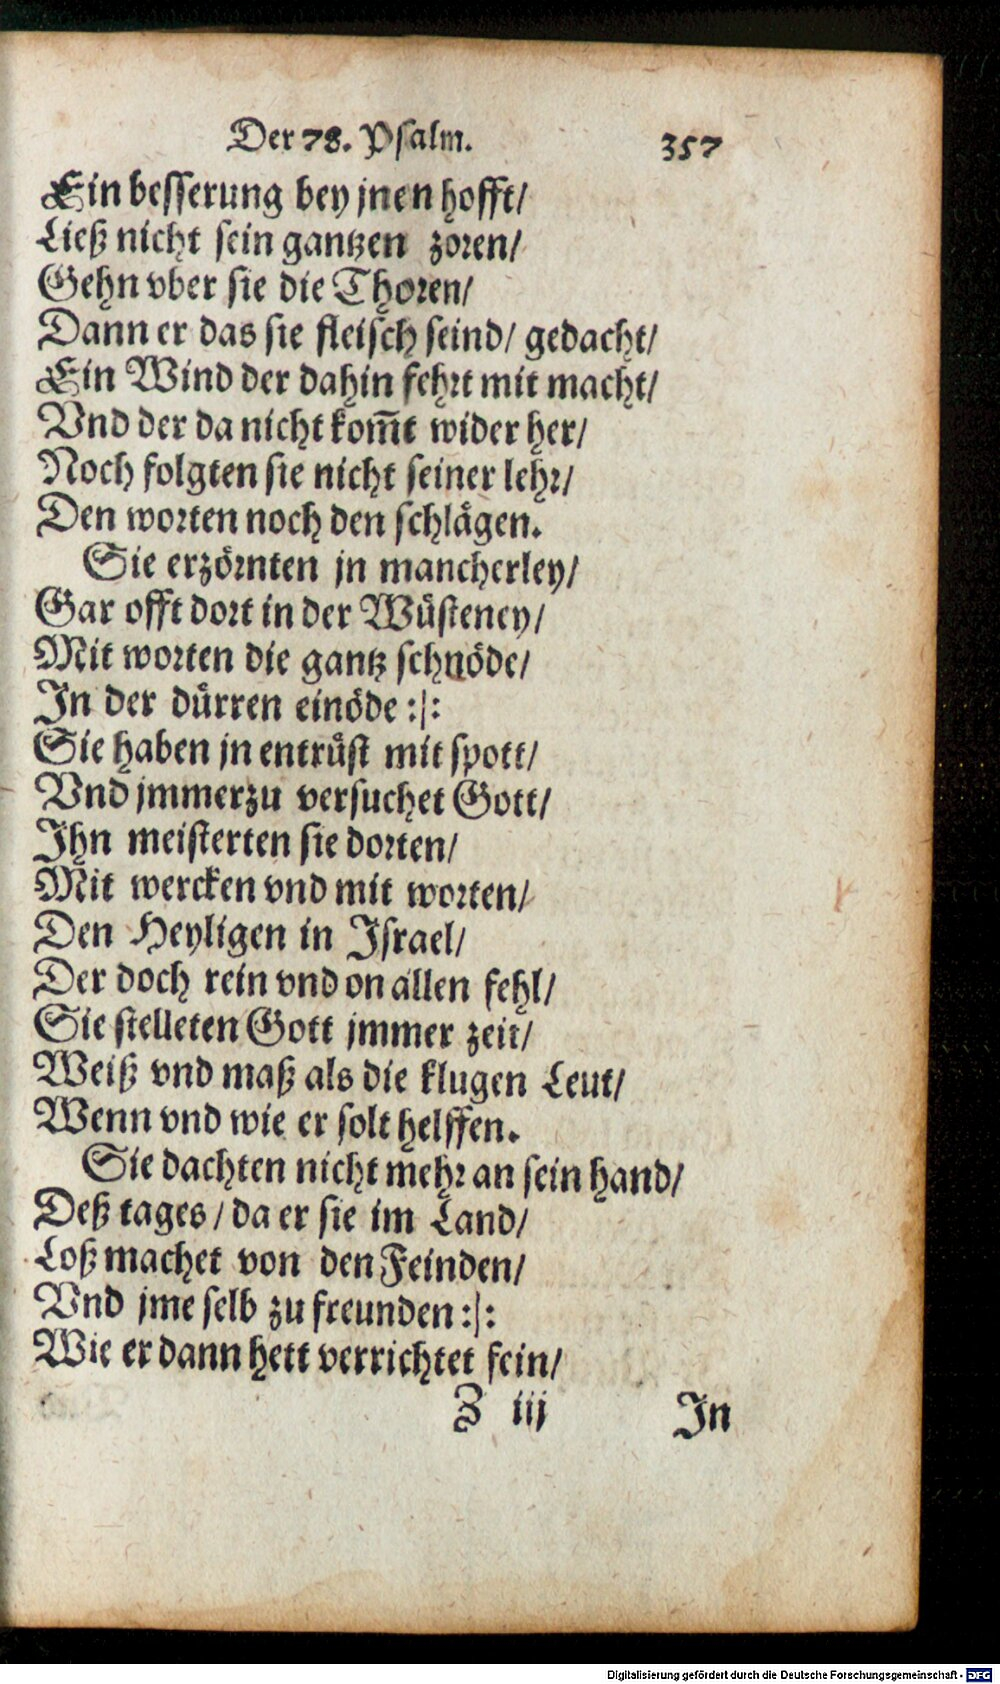 Der 78. Psalm. 357
Ein besserung bey jnen hofft/
Ließ nicht sein gantzen zoren/
Gehn vber sie die Thoren/
Dann er das sie fleisch seind/ gedacht/
Ein Wind der dahin fehrt mit macht/
Vnd der da nicht kom̄t wider her/
Noch folgten sie nicht seiner lehr/
Den worten noch den schlägen.
Sie erzörnten jn mancherley/
Gar offt dort in der Wüsteney/
Mit worten die gantz schnöde/
In der dürren einöde :|:
Sie haben jn entrüst mit spott/
Vnd jmmerzu versuchet Gott/
Ihn meisterten sie dorten/
Mit wercken vnd mit worten/
Den Heyligen in Israel/
Der doch rein vnd on allen fehl/
Sie stelleten Gott jmmer zeit/
Weiß vnd maß als die klugen Leut/
Wenn vnd wie er solt helffen.
Sie dachten nicht mehr an sein hand/
Deß tages/ da er sie im Land/
Loß machet von den Feinden/
Vnd jme selb zu freunden :|:
Wie er dann hett verrichtet fein/
Z iij In
Digitalisierung gefördert durch die Deutsche Forschungsgemeinschaft - DFG